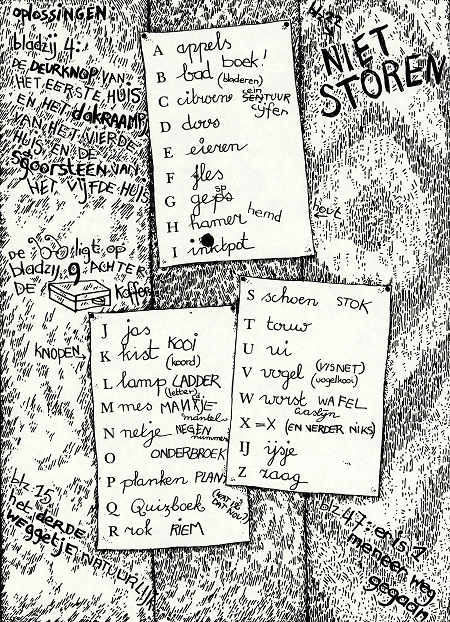 oplossingen:
bladzij 4:
DE DEURKNOP VAN
HET EERSTE HUIS
EN HET dakRAAMP
VAN HET VIERDE
HUIS EN DE
SchOORSTEEN VAN
HET VIJFDE HUIS
De ligt op
bladzij 9 ACHTER
DE Koffer
KNOPEN
blz 15:
het derde
weggetje NATUURLIJK
A appels
B bad boek!
(bladeren)
C citroene ein
SENTUUR
cijfer
D doos
E eieren
F fles
G gesp
H hamer hemd
I inktpot
J jas
K kist KOOI
(koord)
L lamp LADDER
(letter)
M mes MANTJE
mantel
N netje NEGEN
nummer
O ONDERBROEK
P planken PLANT
Q Quizboek (WAT IS DAT NOU?)
R rok RIEM
S schoen STOK
T touw
U ui
V vogel (VISNET)
(vogelkooi)
W worst WAFEL
X = X (EN VERDER NIKS)
IJ ijsje
Z zaag
NIET
STOREN
hout
blz 47: er is 1
meneer weg
gegaan